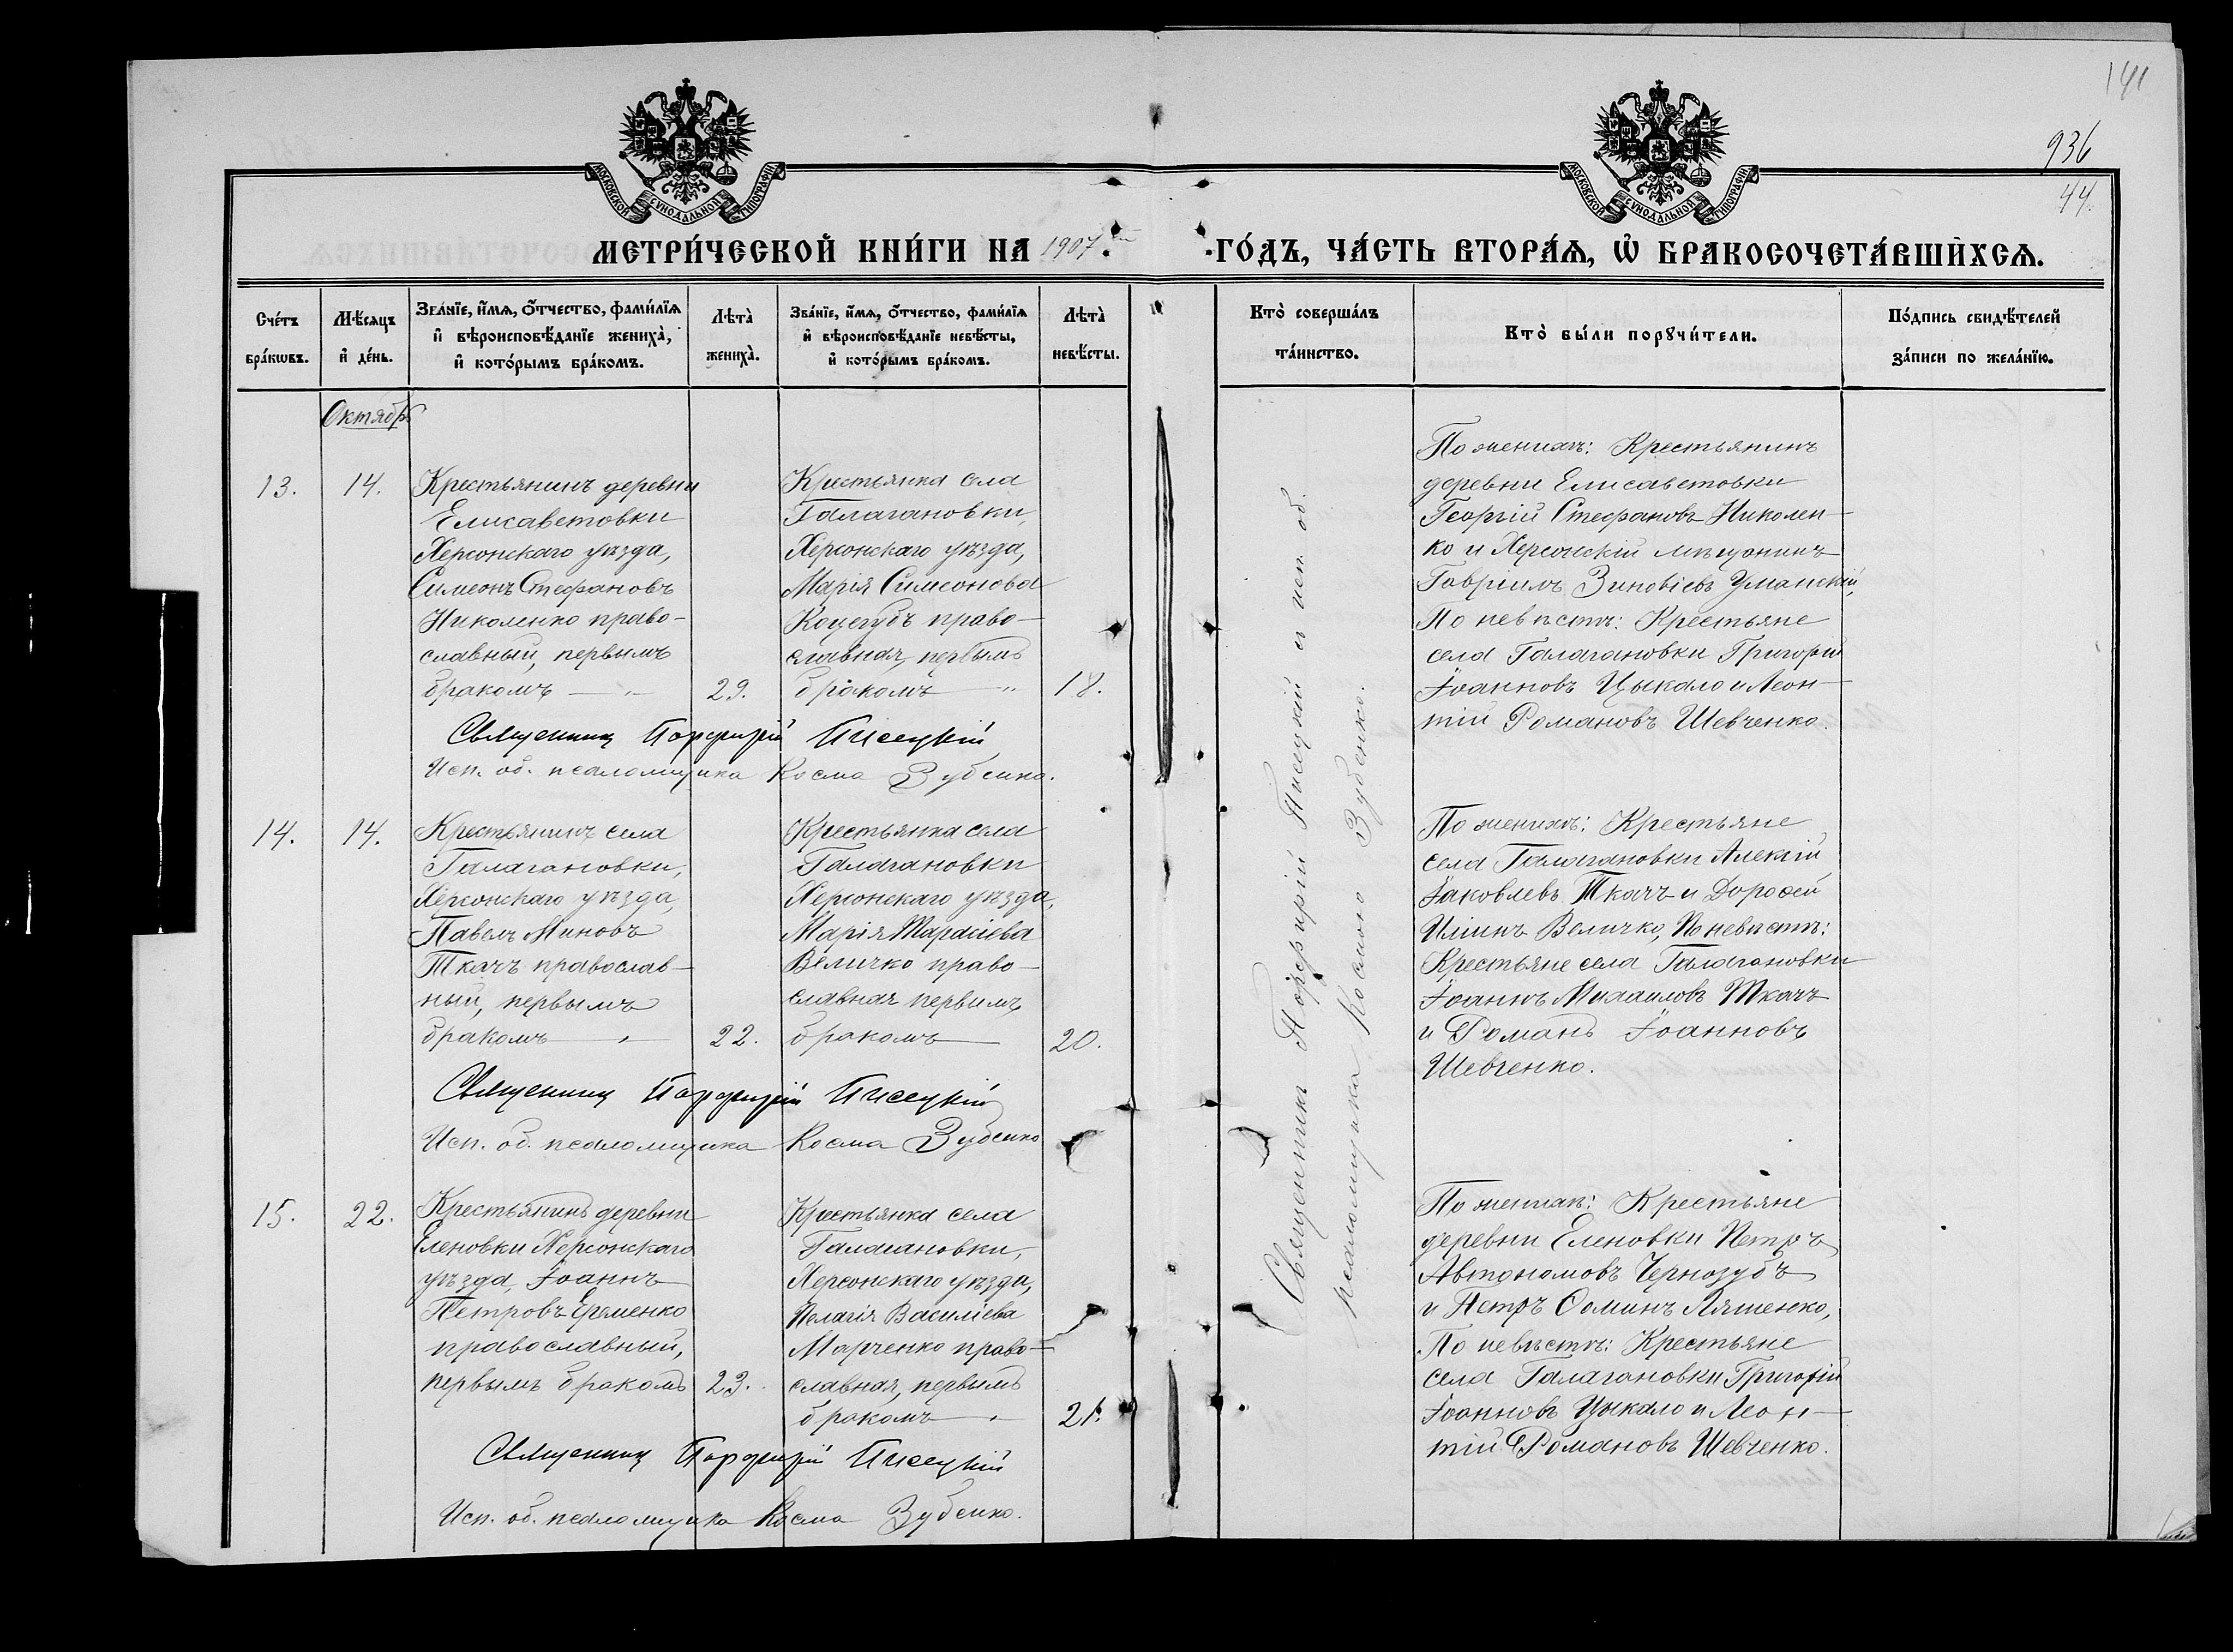 141
936
44.
МОСКОВСКОЙ СУНОДАЛЬНОЙ ТИПОГРАФІИ
МОСКОВСКОЙ СУНОДАЛЬНОЙ ТИПОГРАФІИ
МЕТРИ́ЧЕСКОЙ КНИ́ГИ НА 1907
ГО́ДЪ, ЧА́СТЬ ВТОРА́Ѧ, Ѡ҆ БРАКОСОЧЕТА́ВШИХСѦ.
Сче́тъ бра́кѡвъ.
Мѣ́сѧцъ и҆ де́нь.
Зва́нїе, и҆́мѧ, ѻ҆́тчество, фами́лїѧ и҆ вѣроисповѣ́данїе жениха̀, и҆ кото́рымъ бра́комъ.
Лѣта̀ жениха̀.
Зва́нїе, и҆́мѧ, ѻ҆́тчество, фами́лїѧ и҆ вѣроисповѣ́данїе невѣ́сты, и҆ кото́рымъ бра́комъ.
Лѣта̀ невѣ́сты.
Кто̀ соверша́лъ та́инство.
Кто̀ бы́ли порꙋчи́тели.
По́дпись свидѣ́телей за́писи по жела́нїю.
Октябрь
13.
14.
Крестьянинъ деревни
Елисаветовки
Херсонскаго уѣзда,
Симеонъ Стефановъ
Николенко право-
славный, первымъ
бракомъ
29.
Крестьянка села
Галагановки,
Херсонскаго уѣзда,
Марія Симеонова
Коцегубъ право-
славная, первымъ
бракомъ
18.
По женихѣ: Крестьянинъ
деревни Елисаветовки
Георгій Стефановъ Николен-
ко и Херсонскій мѣщанинъ
Гавріилъ Зиновіевъ Уманскій,
По невѣстѣ: Крестьяне
села Галагановки Григорій
Іоанновъ Цыкало и Леон-
тій Романовъ Шевченко.
Священникъ Порфирій Писецкій
Исп. об. псаломщика Косма Зубенко.
14.
14.
Крестьянинъ села
Галагановки,
Херсонскаго уѣзда,
Павелъ Миновъ
Ткачъ православ-
ный, первымъ
бракомъ
22.
Крестьянка села
Галагановки
Херсонскаго уѣзда,
Марія Тарасіева
Величко право-
славная первымъ
бракомъ
20.
По женихѣ: Крестьяне
села Галагановки Алексій
Іаковлевъ Ткачъ и Дороѳей
Иліинъ Величко, По невѣстѣ:
Крестьяне села Галагановки
Іоаннъ Михаиловъ Ткачъ
и Романъ Іоанновъ
Шевченко.
Священникъ Порфирій Писецкій
Исп. об. псаломщика Косма Зубенко
15.
22.
Крестьянинъ деревни
Еленовки Херсонскаго
уѣзда, Іоаннъ
Петровъ Еременко
православный,
первымъ бракомъ
23.
Крестьянка села
Галагановки,
Херсонскаго уѣзда,
Пелагія Василіева
Марченко право-
славная, первымъ
бракомъ
21.
По женихѣ: Крестьяне
деревни Еленовки Петръ
Автономовъ Чернозубъ
и Петръ Ѳоминъ Ляшенко,
По невѣстѣ: Крестьяне
села Галагановки Григорій
Іоанновъ Цыкало и Леон-
тій Романовъ Шевченко.
Священникъ Порфирій Писецкій
Исп. об. псаломщика Косма Зубенко.
Священникъ Порфирій Писецкій и исп. об.
псаломщика Космою Зубенко.